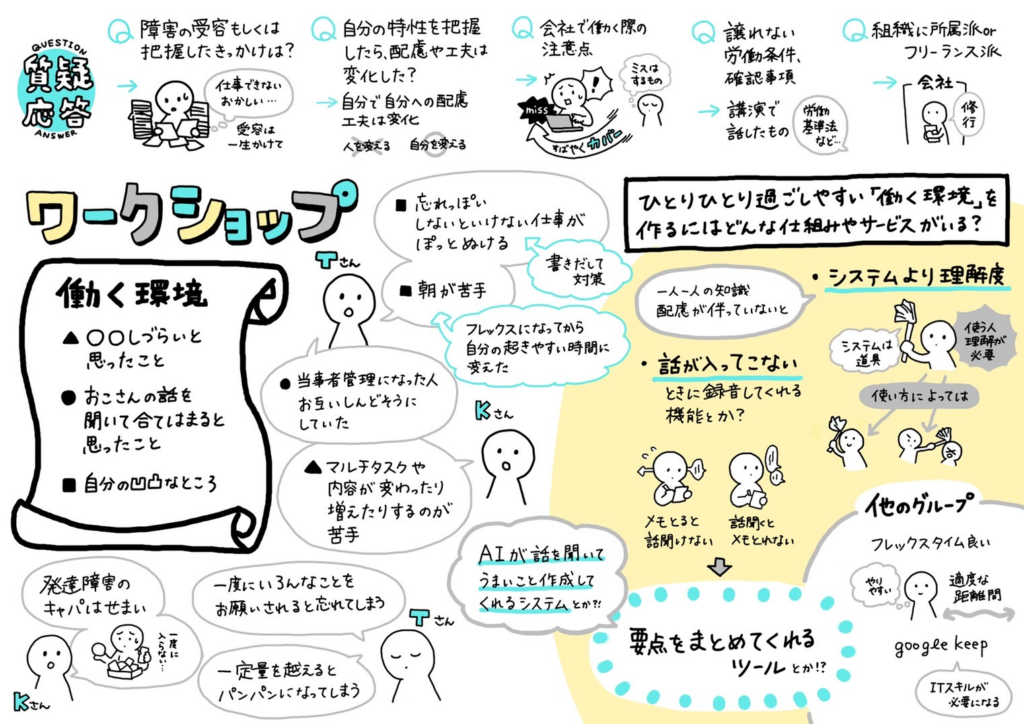 QUESTION
質疑
応答
ANSWER
Q 障害の受容もしくは
把握したきっかけは？
→
仕事できない
おかしい…
受容は
一生かけて
Q 自分の特性を把握
したら、配慮や工夫は
変化した？
→ 自分で自分への配慮
工夫は変化
人を変える 自分を変える
Q 会社で働く際の
注意点
→
miss
!
すばやくカバー
ミスは
するもの
Q 譲れない
労働条件、
確認事項
→ 講演で
話したもの
労働
基準法
など…
Q 組織に所属派or
フリーランス派
→ 会社
修行
ワークショップ
働く環境
▲ 〇〇しづらいと
思ったこと
● おこさんの話を
聞いて合てはまると
思ったこと
■ 自分の凹凸なところ
Tさん
■ 忘れっぽい
しないといけない仕事が
ぽっとぬける
書きだして
対策
■ 朝が苦手
フレックスになってから
自分の起きやすい時間に
変えた
● 当事者管理になった人
お互いしんどそうに
していた
Kさん
▲ マルチタスクや
内容が変わったり
増えたりするのが
苦手
発達障害の
キャパはせまい
一度に
入らない…
Kさん
一度にいろんなことを
お願いされると忘れてしまう
Tさん
一定量を越えると
パンパンになってしまう
ひとりひとり過ごしやすい「働く環境」を
作るにはどんな仕組みやサービスがいる？
・システムより理解度
一人一人の知識
配慮が伴っていないと
システムは
道具
使う人
理解が
必要
使い方によっては
・話が入ってこない
ときに録音してくれる
機能とか？
メモとると
話聞けない
話聞くと
メモとれない
AIが話を聞いて
うまいこと作成して
くれるシステムとか?!
要点をまとめてくれる
ツールとか!?
他のグループ
フレックスタイム良い
やり
やすい
適度な
距離間
google keep
ITスキルが
必要になる